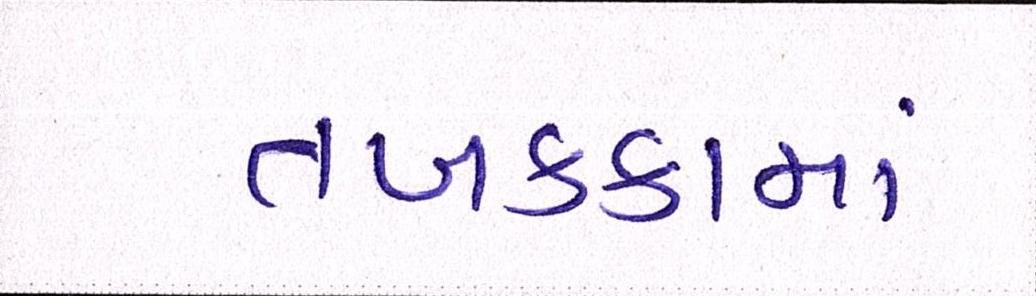 તબકકામાં